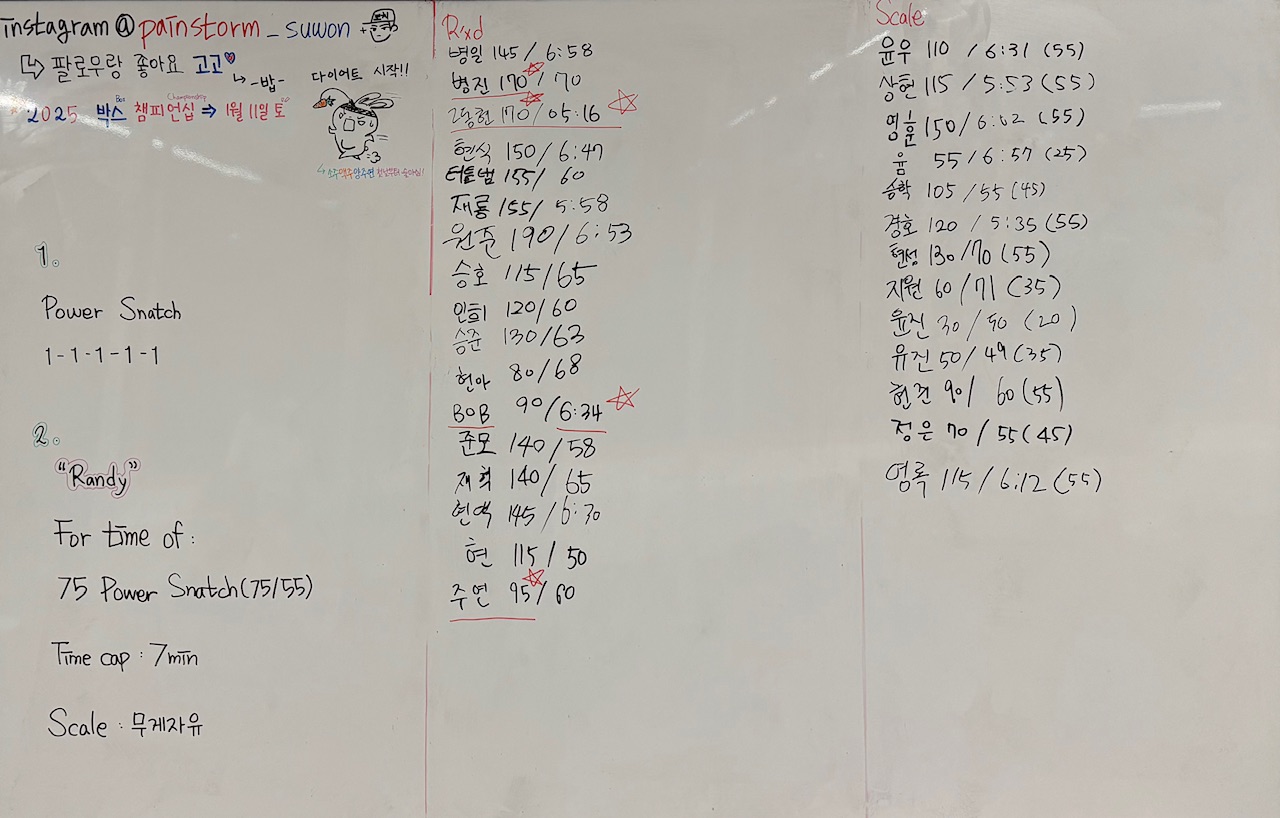 instagram @ painstorm _ suwon +
↳ 팔로우랑 좋아요 고고♥
↳ -밥-
다이어트 시작!!
Box Championship
2025 박스 챔피언십 ⇒ 1월 11일 토
1.
Power Snatch
1-1-1-1-1
2.
"Randy"
For time of :
75 Power Snatch(75/55)
Time cap : 7min
Scale : 무게자유
R'xd
병일 145/6:58
병진 170☆/70
170☆/05:16 ☆
현식 150/6:47
터틀범 155/60
재룡 155/5:58
원준 190/6:53
승호 115/65
인희 120/60
승준 130/63
현아 80/68
BOB 90/6:34 ☆
준모 140/58
재혁 140/65
145/6:30
현 115/50
주연 95☆/60
Scale
윤우 110 /6:31 (55)
상현 115/5:53 (55)
영훈 150/6:02 (55)
윰 55/6:57 (25)
승학 105/55 (45)
경호 120 / 5:35 (55)
현성 130/70 (55)
지원 60/71 (35)
윤진 30/50 (20)
유진 50/49 (35)
90/ 60 (55)
정은 70/55(45)
영록 115/6:12 (55)